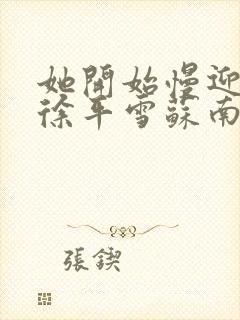 她開始慢迎
徐平雪蘇南
張鍥